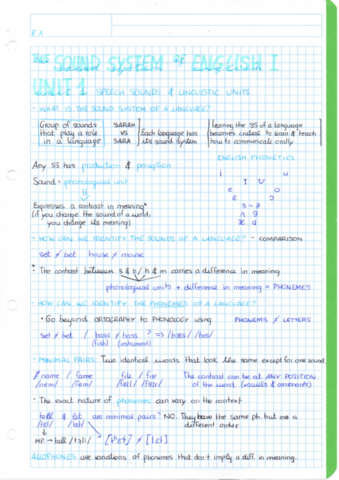 THE SOUND SYSTEM OF ENGLISH I
UNIT 1 SPEECH SOUNDS & LINGUISTIC UNITS
- WHAT IS THE SOUND SYSTEM OF A LANGUAGE?
Group of sounds that play a role in a language
SARAH VS SARA
Each language has its sound system
Learning the SS of a language becomes crucial to learn & teach how to communicate orally
Any SS has production & perception
ENGLISH PHONETICS
Sound = phonological unit
Expresses a contrast in meaning*
(if you change the sound of a word, you change its meaning)
- HOW CAN WE IDENTIFY THE SOUNDS OF A LANGUAGE? - COMPARISON
set ≠ bet house ≠ mouse
* The contrast between s & b / h & m carries a difference in meaning
phonological units + difference in meaning = PHONEMES
- HOW CAN WE IDENTIFY THE PHONEMES OF A LANGUAGE?
• Go beyond ORTOGRAPHY to PHONOLOGY using PHONEMES ≠ LETTERS
set ≠ bet / bass ≠ bass ? => /bæs/ /beɪs/
(fish) (instrument)
- MINIMAL PAIRS: Two identical words that look the same except for one sound
≠ name / fame file / fire The contrast can be at ANY POSITION
/neɪm/ /feɪm/ of the word (vowels & consonants)
- The exact nature of phonemes can vary on the context
are minimal pairs? NO. They have the same ph. but in a different order
ALLOPHONES are variations of phonemes that don't imply a diff. in meaning.